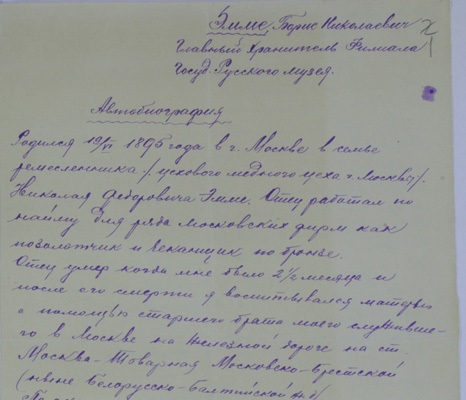 Эмме, Борис Николаевич
Главный хранитель Филиала
Госуд. Русского музея.
Автобиография
Родился 19/VI 1895 года в г. Москве в семье
ремесленника /цехового медного цеха г. Москвы/.
Николая Федоровича Эмме. Отец работал по
найму для ряда московских фирм как
позолотчик и чеканщик по бронзе.
Отец умер когда мне было 2½ месяца и
после его смерти я воспитывался матерью
с помощью старшего брата моего служивше-
го в Москве на железной дороге на ст.
Москва-Товарная Московско-Брестской
(ныне Белорусско-Балтийской ж.д/